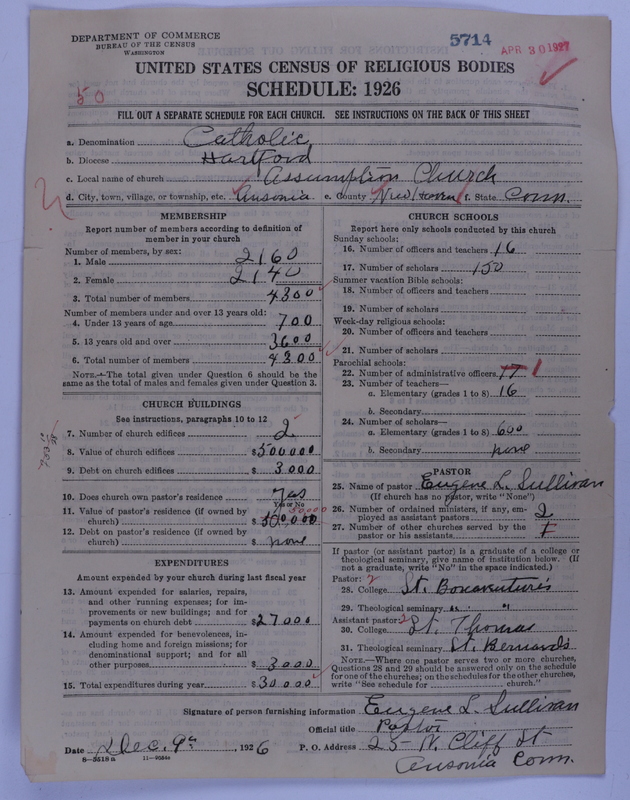 DEPARTMENT OF COMMERCE
BUREAU OF THE CENSUS
WASHINGTON
5714
APR 30 1927
UNITED STATES CENSUS OF RELIGIOUS BODIES
SCHEDULE: 1926
50
FILL OUT A SEPARATE SCHEDULE FOR EACH CHURCH. SEE INSTRUCTIONS ON THE BACK OF THIS SHEET
a. Denomination Catholic
b. Diocese Hartford
c. Local name of church Assumption Church
d. City, town, village, or township, etc. Ansonia e. County New Haven f. State Conn.
MEMBERSHIP
Report number of members according to definition of member in your church
Number of members, by sex:
1. Male 2160
2. Female 2140
3. Total number of members 4300
Number of members under and over 13 years old:
4. Under 13 years of age 700
5. 13 years old and over 3600
6. Total number of members 4300
NOTE.—The total given under Question 6 should be the same as the total of males and females given under Question 3.
CHURCH BUILDINGS
See instructions, paragraphs 10 to 12
7. Number of church edifices 2
8. Value of church edifices $500000
9. Debt on church edifices $3000
10. Does church own pastor's residence yes
Yes or No
11. Value of pastor's residence (if owned by church) $
50000
12. Debt on pastor's residence (if owned by church) $ none
EXPENDITURES
Amount expended by your church during last fiscal year
13. Amount expended for salaries, repairs, and other running expenses; for improvements or new buildings; and for payments on church debt $27000
14. Amount expended for benevolences, including home and foreign missions; for denominational support; and for all other purposes $3000
15. Total expenditures during year $30000
CHURCH SCHOOLS
Report here only schools conducted by this church
Sunday schools:
16. Number of officers and teachers 16
17. Number of scholars 150
Summer vacation Bible schools:
18. Number of officers and teachers
19. Number of scholars
Week-day religious schools:
20. Number of officers and teachers
21. Number of scholars
Parochial schools:
22. Number of administrative officers 17 1
23. Number of teachers—
a. Elementary (grades 1 to 8) 16
b. Secondary
24. Number of scholars—
a. Elementary (grades 1 to 8) 600
b. Secondary none
PASTOR
25. Name of pastor Eugene L. Sullivan
(If church has no pastor, write "None")
26. Number of ordained ministers, if any, employed as assistant pastors 2
27. Number of other churches served by the pastor or his assistants 1
If pastor (or assistant pastor) is a graduate of a college or theological seminary, give name of institution below. (If not a graduate, write "No" in the space indicated.)
Pastor: 2
28. College St. Bonaventure's
29. Theological seminary " "
Assistant pastor: 2
30. College St. Thomas
31. Theological seminary St. Bernard's
NOTE.—Where one pastor serves two or more churches, Questions 28 and 29 should be answered only on the schedule for one of the churches; on the schedules for the other churches, write "See schedule for church."
Signature of person furnishing information Eugene L. Sullivan
Official title Pastor
Date Dec. 9th 1926 P. O. Address 25 N. Cliff St
Ansonia Conn.
8-3518a 11-9564c